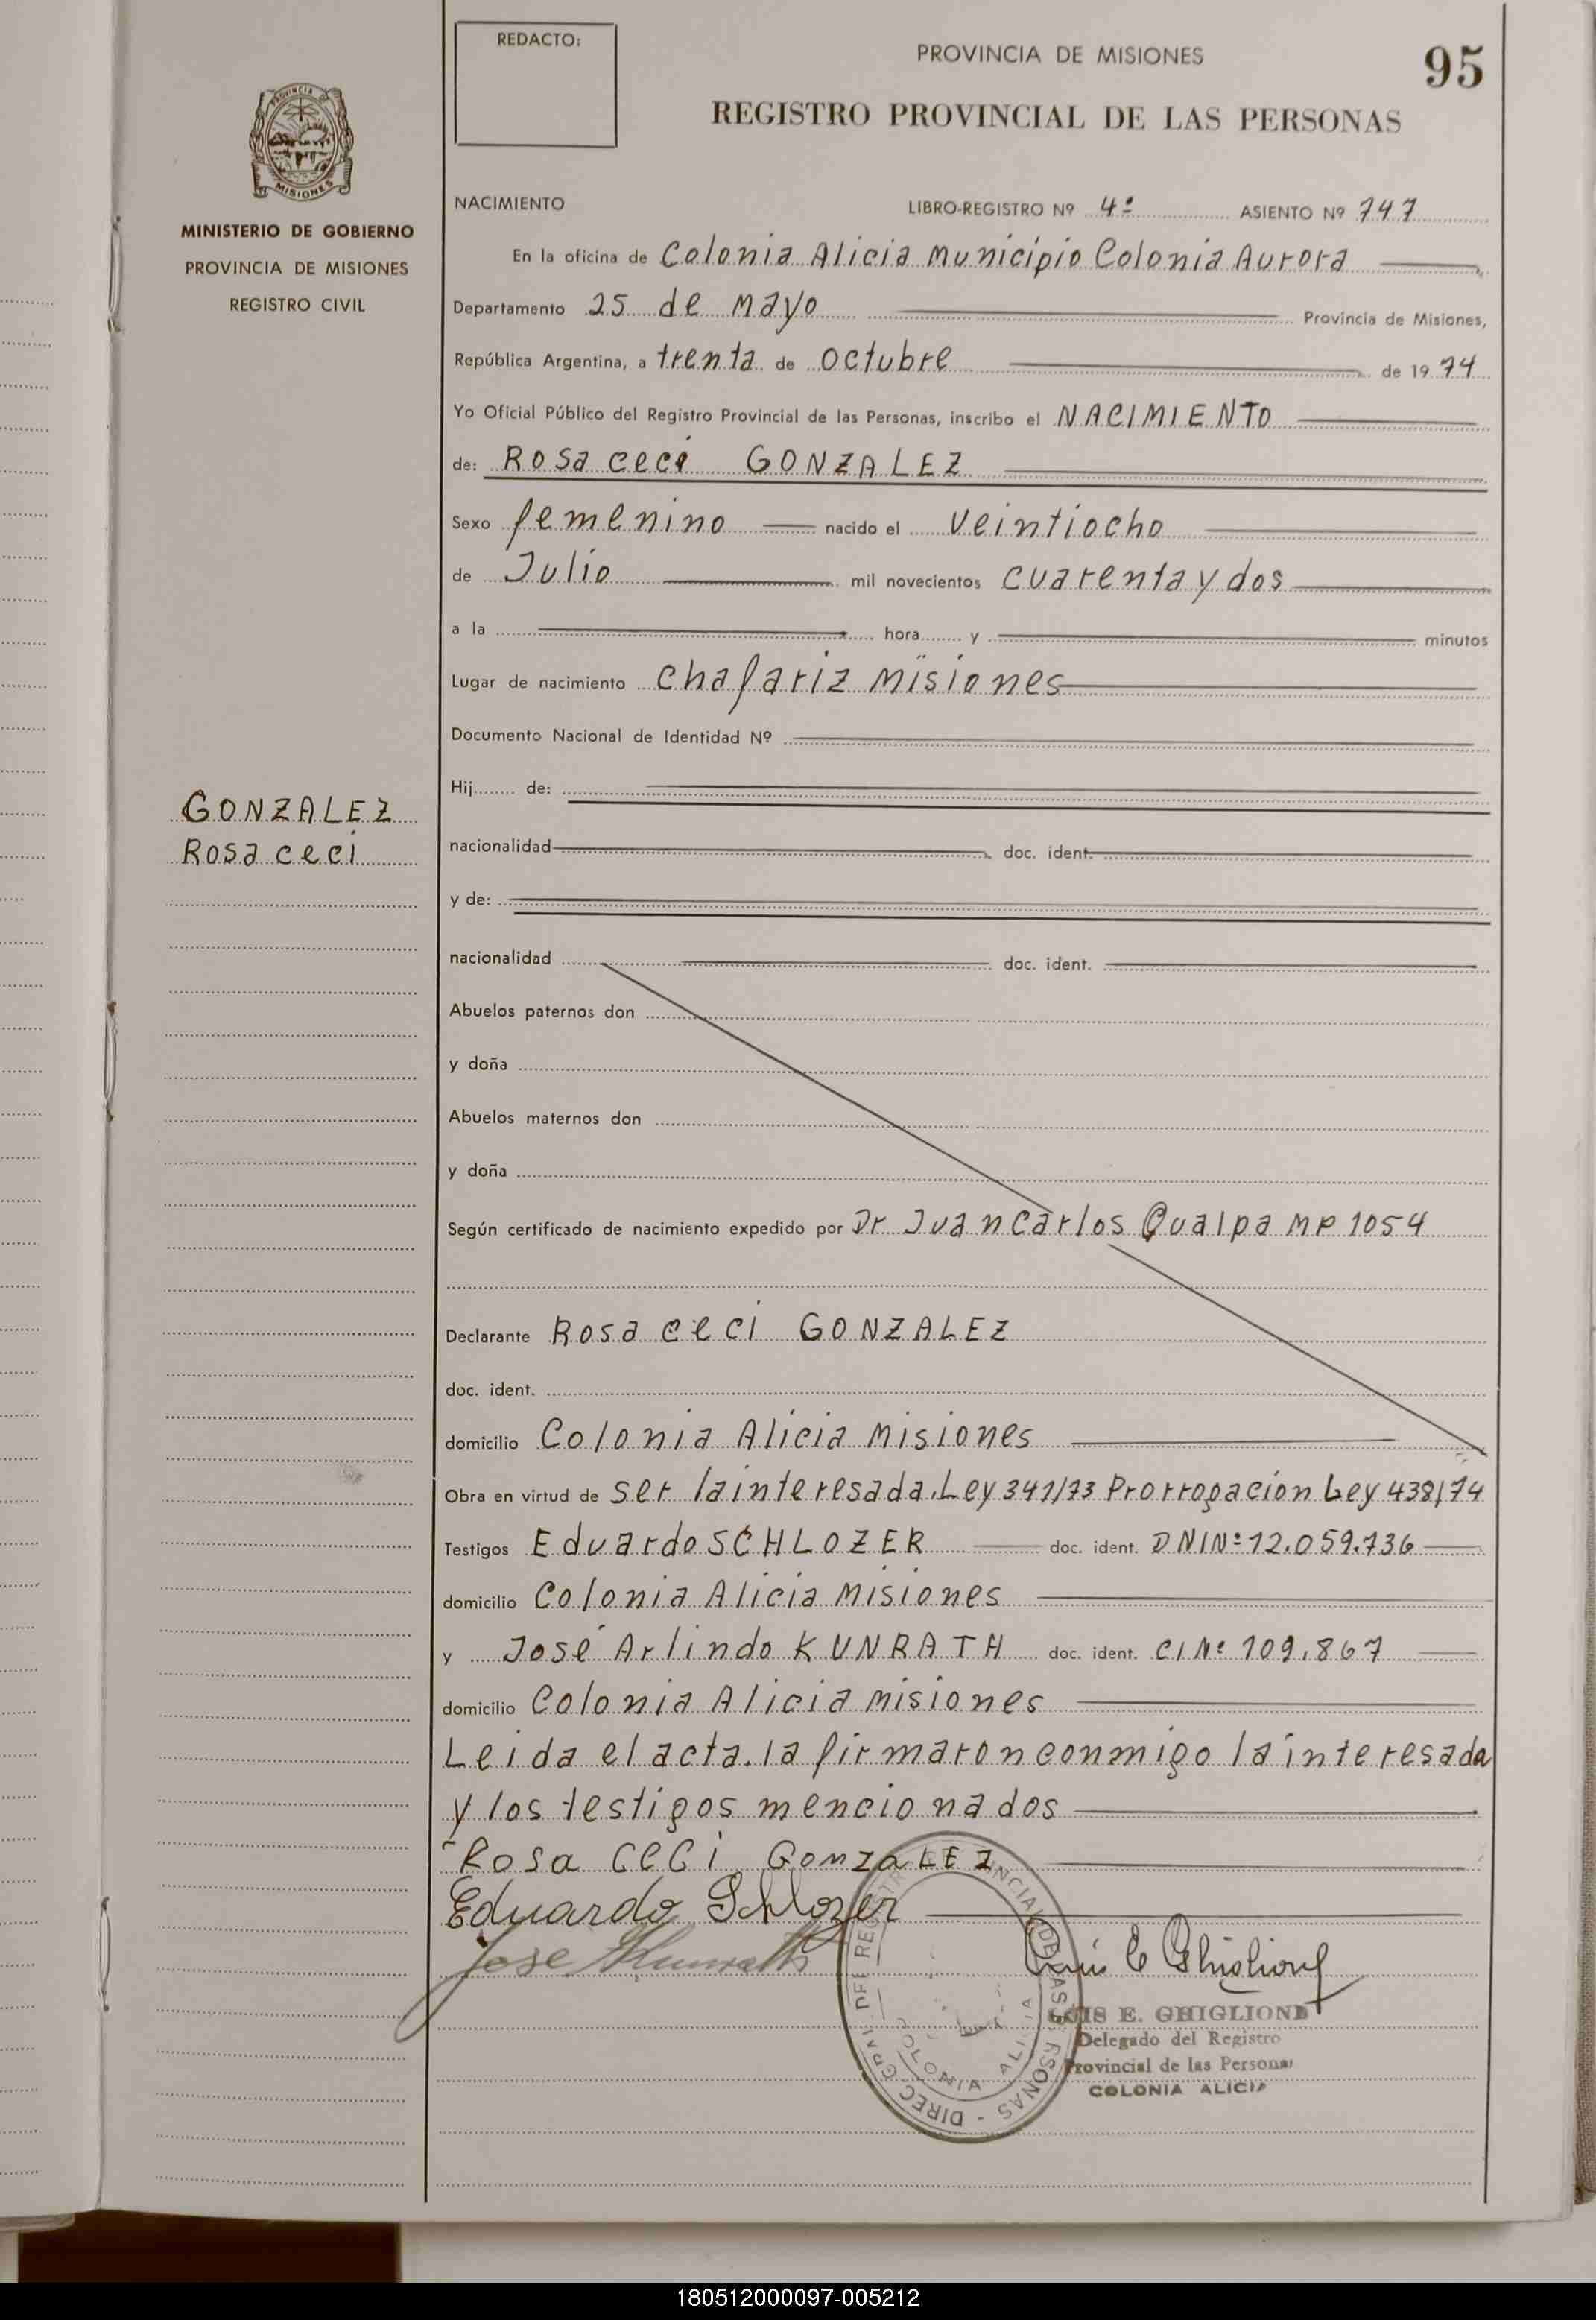 REDACTO:
PROVINCIA DE MISIONES
95
REGISTRO PROVINCIAL DE LAS PERSONAS
PROVINCIA DE
MISIONES
MINISTERIO DE GOBIERNO
PROVINCIA DE MISIONES
REGISTRO CIVIL
NACIMIENTO LIBRO-REGISTRO Nº 4º ASIENTO Nº 747
En la oficina de Colonia Alicia Municipio Colonia Aurora
Departamento 25 de Mayo Provincia de Misiones,
República Argentina, a trenta de octubre de 19 74
Yo Oficial Público del Registro Provincial de las Personas, inscribo el NACIMIENTO
de: Rosa ceci GONZALEZ
Sexo femenino nacido el veintiocho
de Julio mil novecientos cuarenta y dos
a la hora y minutos
Lugar de nacimiento chafariz Misiones
Documento Nacional de Identidad Nº
Hij de:
GONZALEZ
Rosa ceci
nacionalidad doc. ident.
y de:
nacionalidad doc. ident.
Abuelos paternos don
y doña
Abuelos maternos don
y doña
Según certificado de nacimiento expedido por Dr Juan Carlos Qualpa MP 1054
Declarante Rosa ceci GONZALEZ
doc. ident.
domicilio Colonia Alicia Misiones
Obra en virtud de ser la interesada. Ley 341/73 Prorrogación Ley 438/74
Testigos Eduardo SCHLOZER doc. ident. DNI Nº 12.059.736
domicilio Colonia Alicia Misiones
y José Arlindo KUNRATH doc. ident. CI Nº 109.867
domicilio Colonia Alicia Misiones
Leida el acta. la firmaron conmigo la interesada
y los testigos mencionados
Rosa CeCi GonzaLEZ
Eduardo Schlozer
Jose Kunrath
Luis E Ghiglione
LUIS E. GHIGLIONE
Delegado del Registro
Provincial de las Personas
COLONIA ALICIA
DIREC GRAL DEL REGISTRO PROVINCIAL DE LAS PERSONAS -
COLONIA ALICIA
180512000097-005212